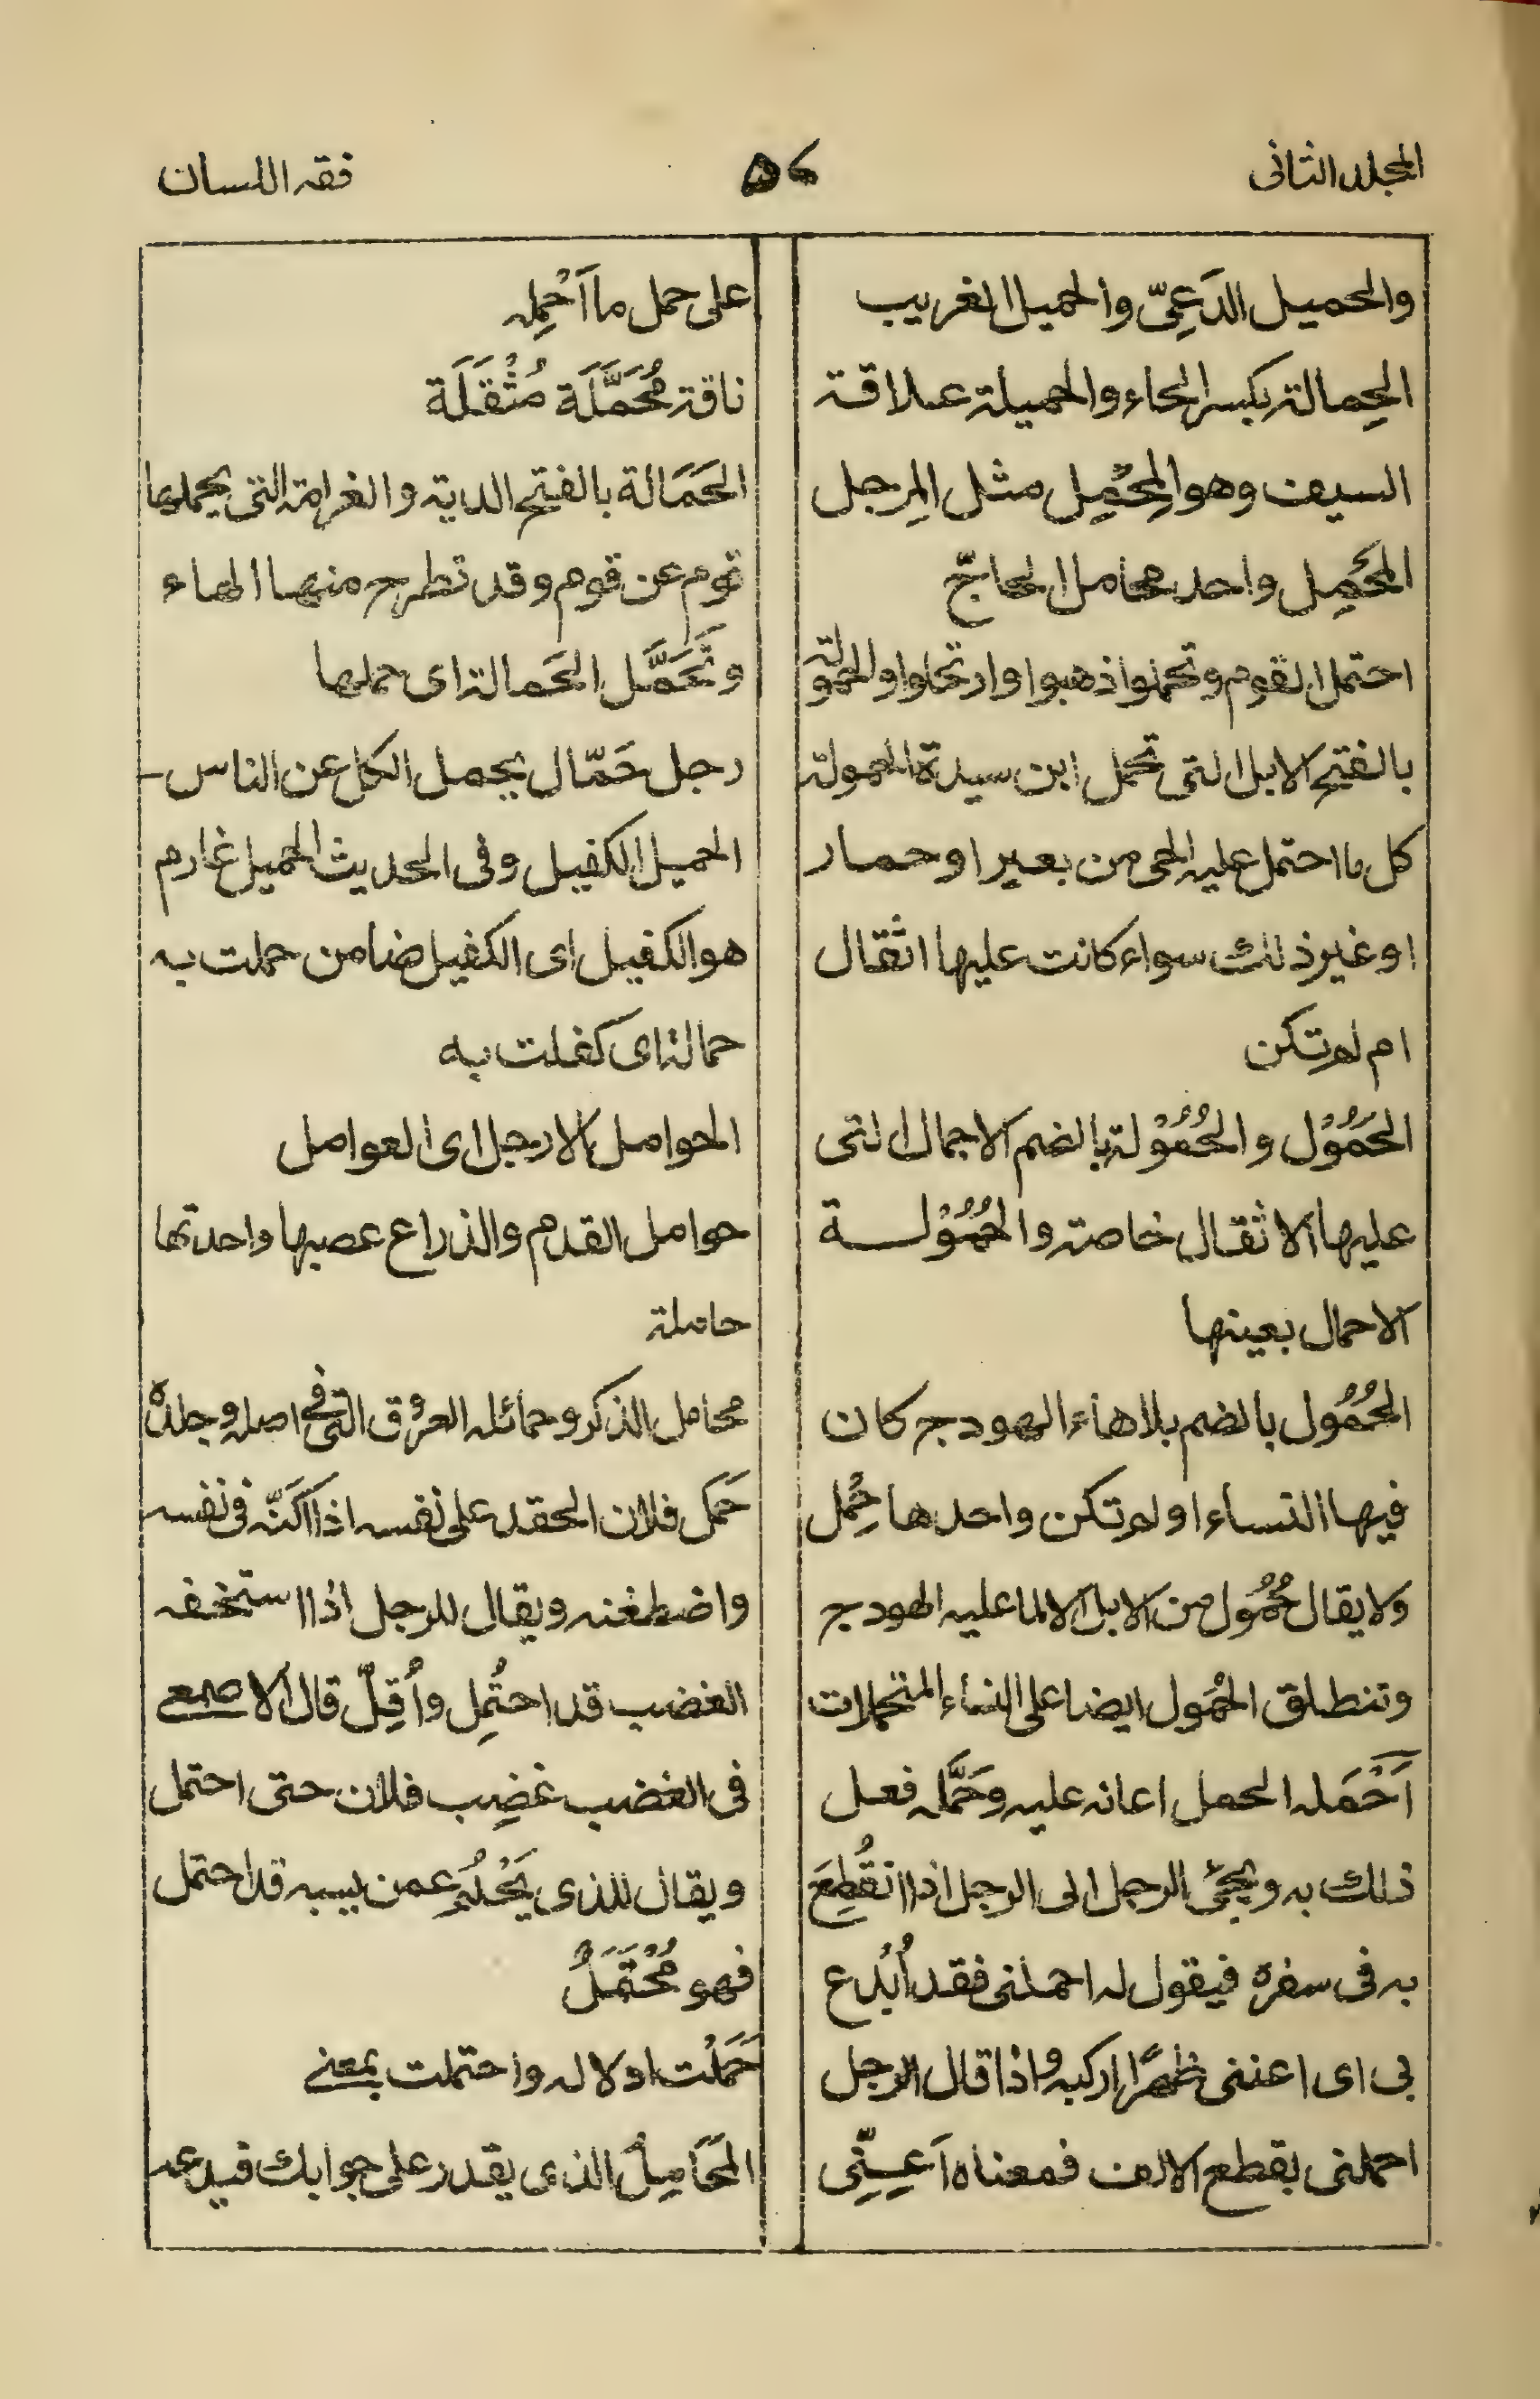 المجلد الثانى
۵۷
فقه اللسان
والحميل الدَعِىّ والحميل الغريب
الحِمالة بكسر الحاء والحميلة علاقة
السيف وهو المِحْمِل مثل المِرجل
المَحْمِل واحد محامل الحاجّ
احتمل القوم وتحملوا ذهبوا وارتحلوا والحمولة
بالفتح الابل التى تحمل ابن سيدة الحمولة
كل ما احتمل عليه الحى من بعير او حمار
او غير ذلك سواء كانت عليها اثقال
ام لم تكن
الحُمُوْل والحُمُوْلة بالضم الاجمال التى
عليها الاثقال خاصة والحُمُوْلة
الاحمال بعينها
الحُمُوْل بالضم بلاهاء الهودج كان
فيها النساء او لم تكن واحدها حِمْل
ولا يقال حُمُوْل من الابل الا لما عليه الهودج
وتنطلق الحُمُول ايضا على النساء المتحملات
اَحْمَله الحمل اعانه عليه وحَمَّله فعل
ذلك به ويجئ الرجل الى الرجل اذا انقُطِعَ
به فى سفره فيقول له احملنى فقد اُبْدُع
بى اى اعننى ظهرًا اركبه واذا قال الرجل
احملنى بقطع الالف فمعناه اَعِنِّى
على حمل ما اَحْمِله
ناقة مُحَمَّلَة مُثْقَلَة
الحَمَالة بالفتح الدية والغرامة التى يحملها
قوم عن قوم وقد تطرح منها الهاء
وتَحَمَّل الحَمالة اى حملها
رجل حَمّال يحمل الكل عن الناس-
الحميل الكفيل وفى الحديث الحميل غارم
هو الكفيل اى الكفيل ضامن حملت به
حمالة اى كفلت به
الحوامل الارجل اى العوامل
حوامل القدم والذراع عصبها واحدتها
حاملة
محامل الذكر وحمائله العروق التى فى اصله وجلده
حَمَل فلان الحقد على نفسه اذا اَكَنّه فى نفسه
واضطغنه ويقال للرجل اذا استخفه
الغضب قد احتُمِل واُقِلّ قال الاصمعى
فى الغضب غضِب فلان حتى احتمل
ويقال للذى يَحْلُم عمن يسبه قد احتمل
فهو مُحْتَمَلٌ
حَمَلْت ادلاله واحتملت بمعنى
المَحَامِلُ الذى يقدر على جوابك فيدعه